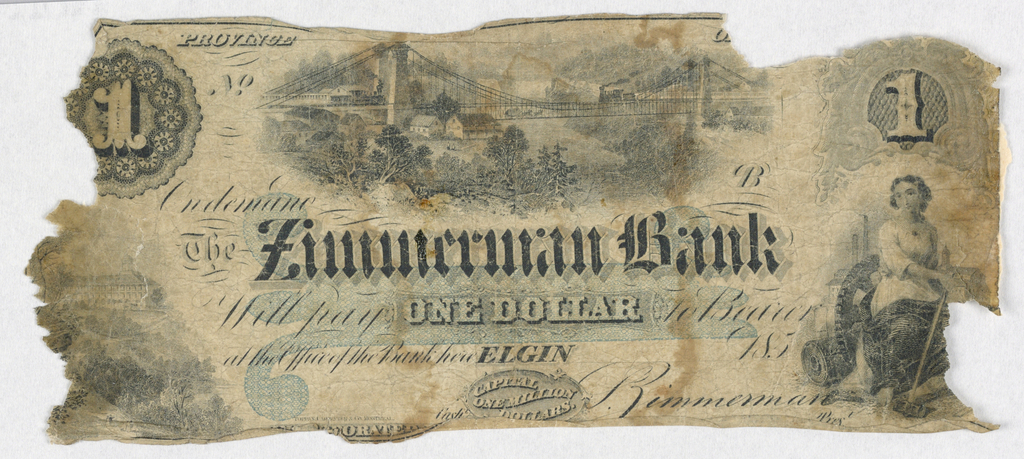 PROVINCE
No
1
1
B
On demand
The Zimmerman Bank
Will pay ONE DOLLAR to Bearer
at the Office of the Bank here ELGIN 185
CAPITAL
ONE MILLION
DOLLARS.
Cash.r
Zimmerman
Pres.t